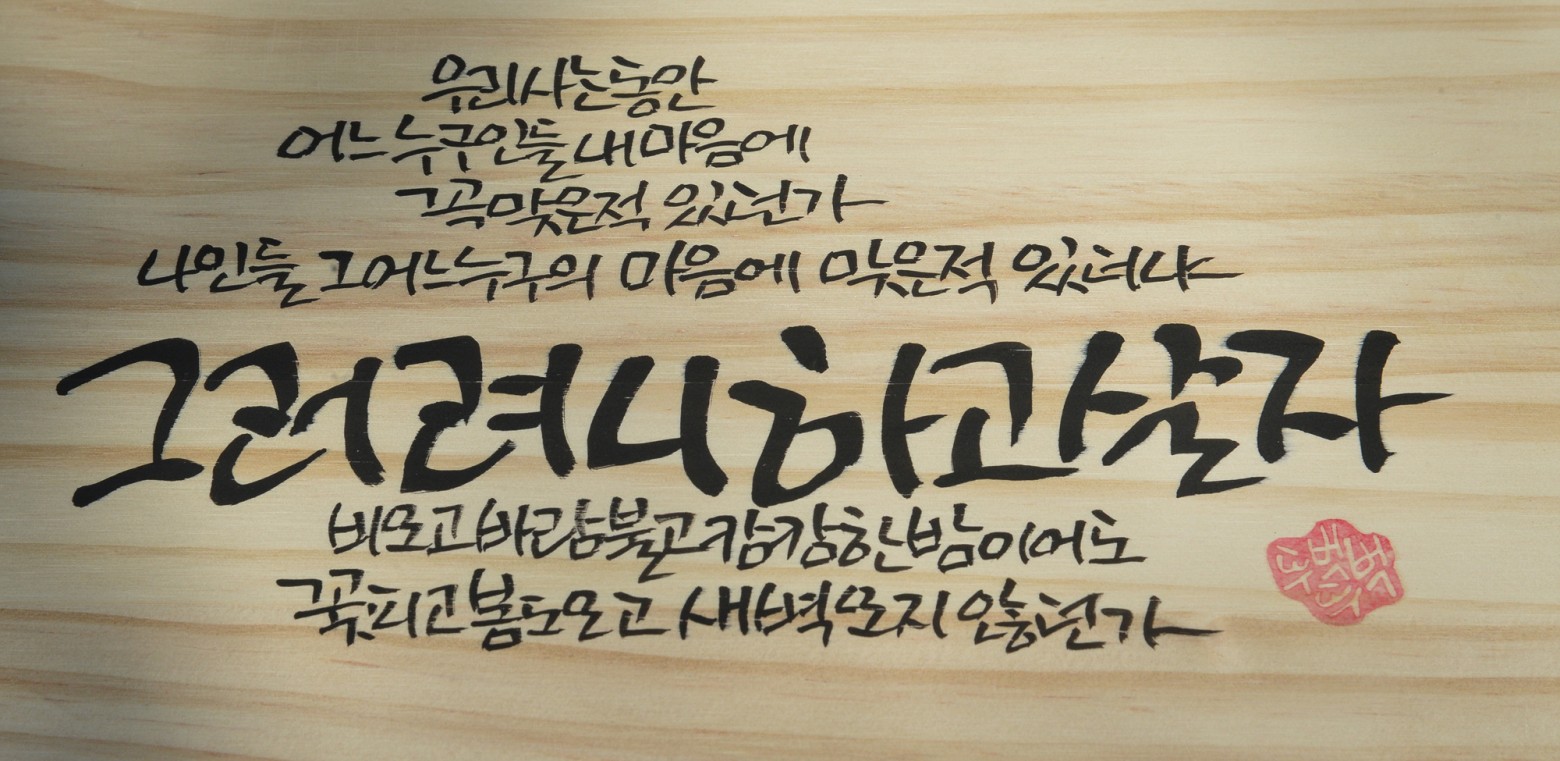 우리 사는 동안
어느 누구인들 내 마음에
꼭 맞은 적 있던가
나인들 그 어느 누구의 마음에 맞은 적 있더냐
그러려니 하고 살자
비 오고 바람 불고 캄캄한 밤이어도
꽃피고 봄도 오고 새벽 오지 않던가